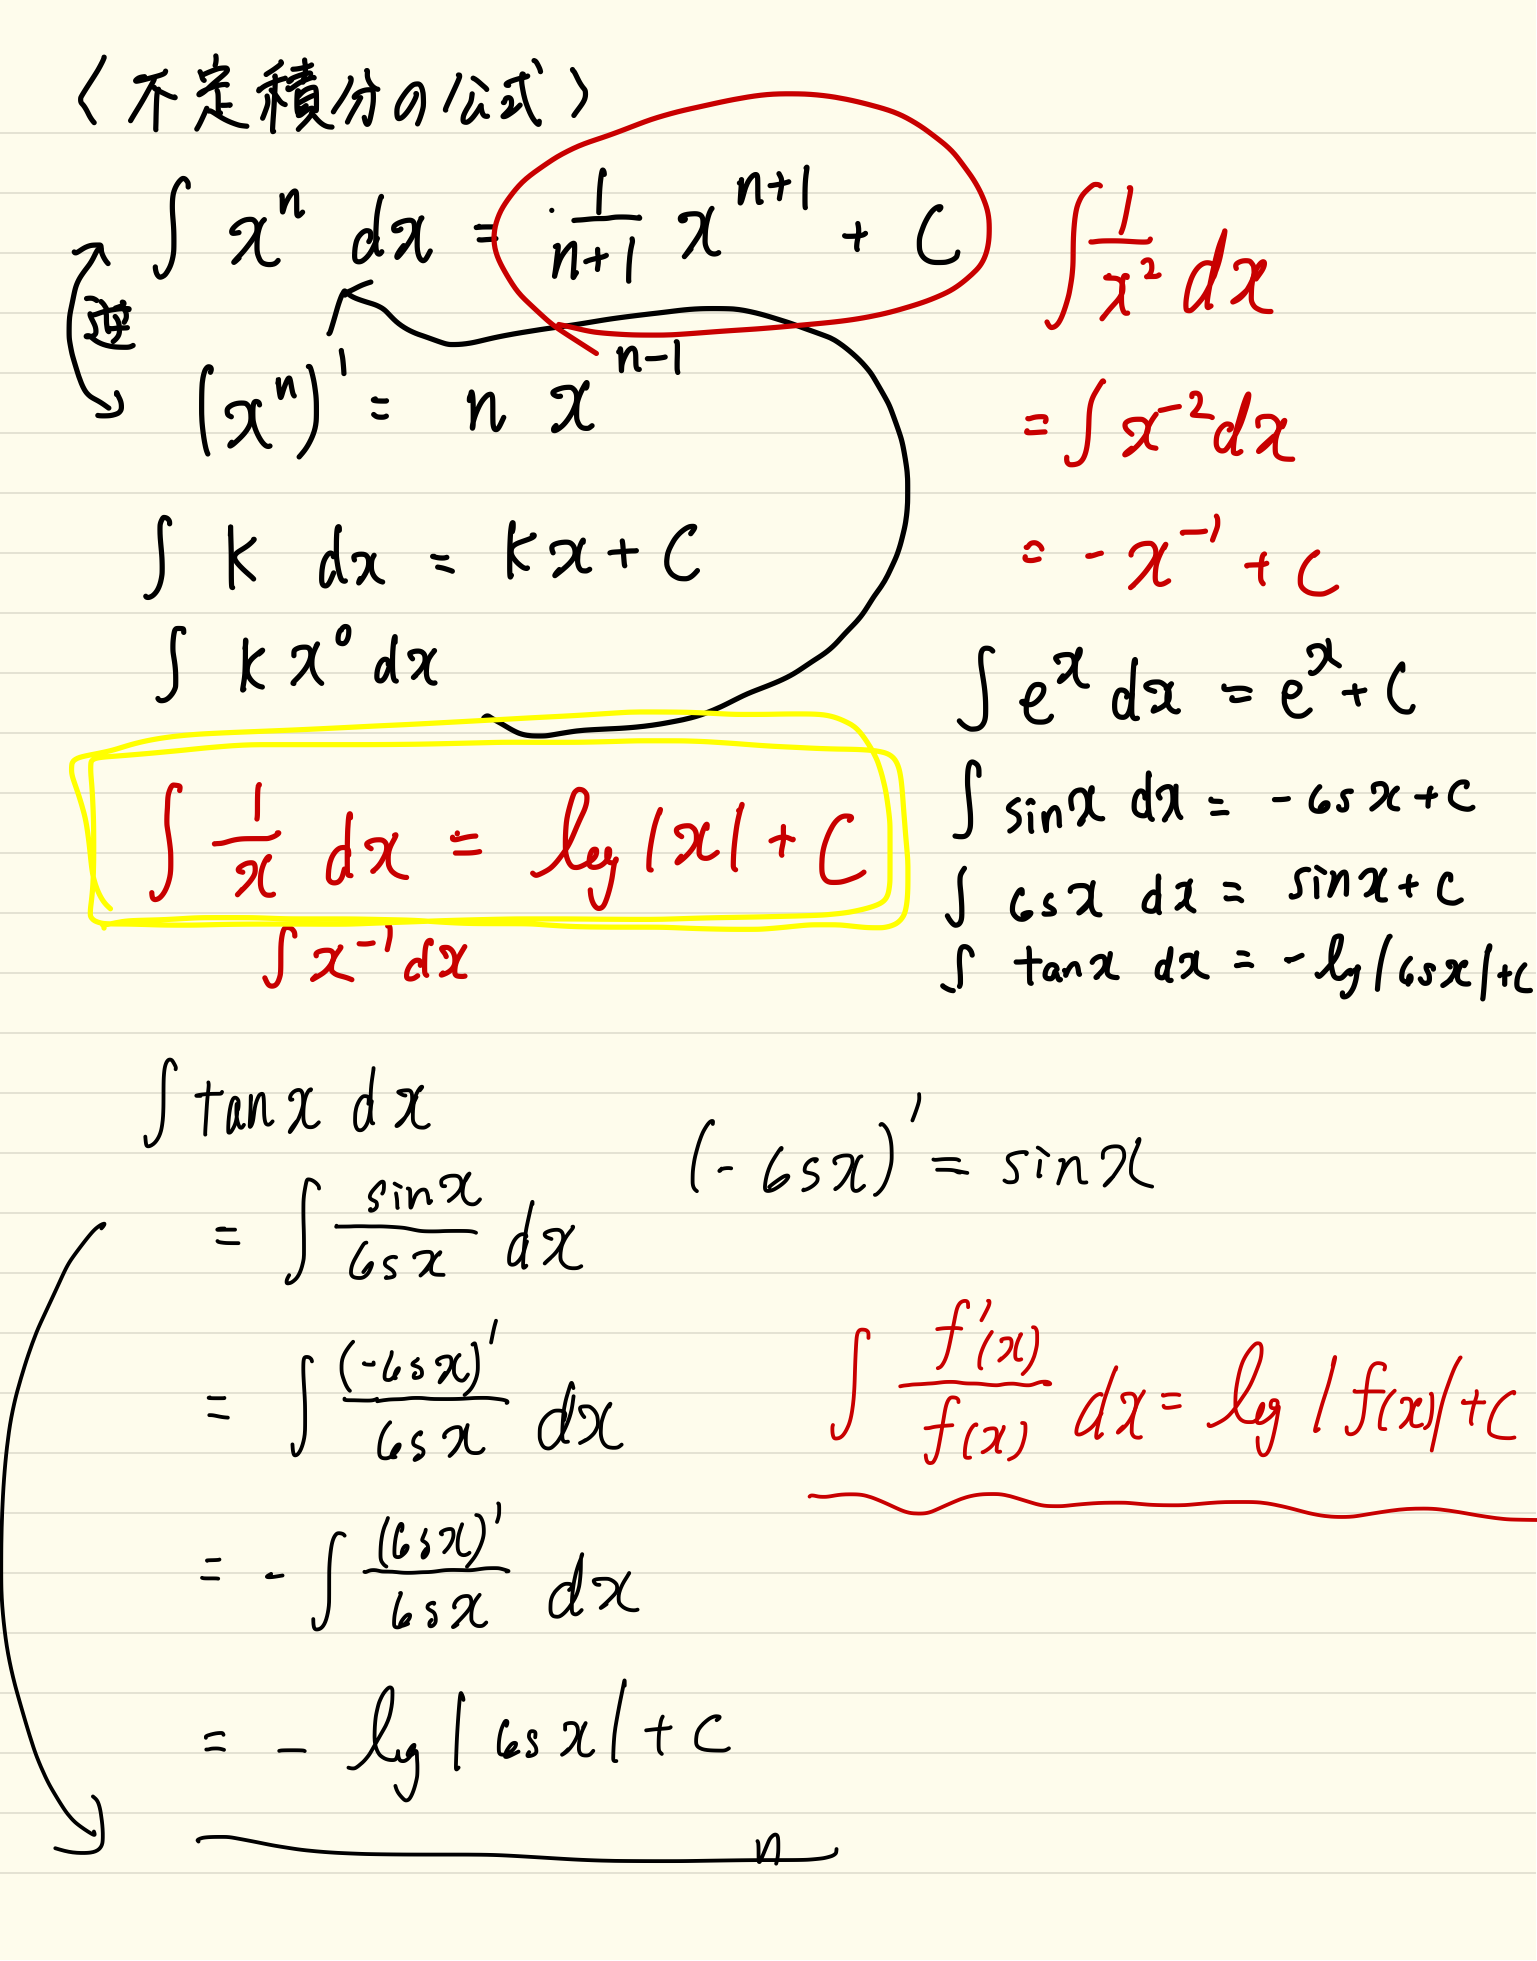 〈不定積分の公式〉
∫ xⁿ dx = 1/(n+1) xⁿ⁺¹ + C
逆
(xⁿ)' = n xⁿ⁻¹
∫ k dx = kx + C
∫ k x⁰ dx
∫ 1/x dx = log|x| + C
∫ x⁻¹ dx
∫ 1/x² dx
= ∫ x⁻² dx
= -x⁻¹ + C
∫ eˣ dx = eˣ + C
∫ sinx dx = -cosx + C
∫ cosx dx = sinx + C
∫ tanx dx = -log|cosx| + C
∫ tanx dx
= ∫ sinx/cosx dx
= ∫ (-cosx)'/cosx dx
= -∫ (cosx)'/cosx dx
= -log|cosx| + C
(-cosx)' = sinx
∫ f'(x)/f(x) dx = log|f(x)| + C